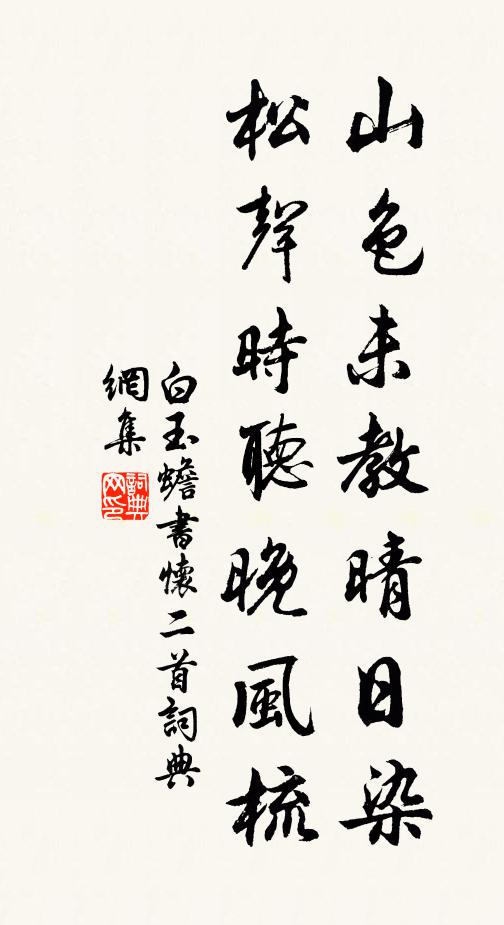 山色未教晴日染
松聲時聽晚風梳
白玉蟾書懷二首詞典
網集
詞典
网印